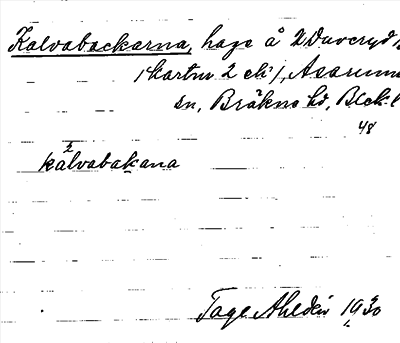 Kalvabackarna, hage å 2 Duveryd
(kartur 2 ek), Asarums
sn, Bräkne hd, Blek. l
48
kálvabakana
Tage Ahldén 1930